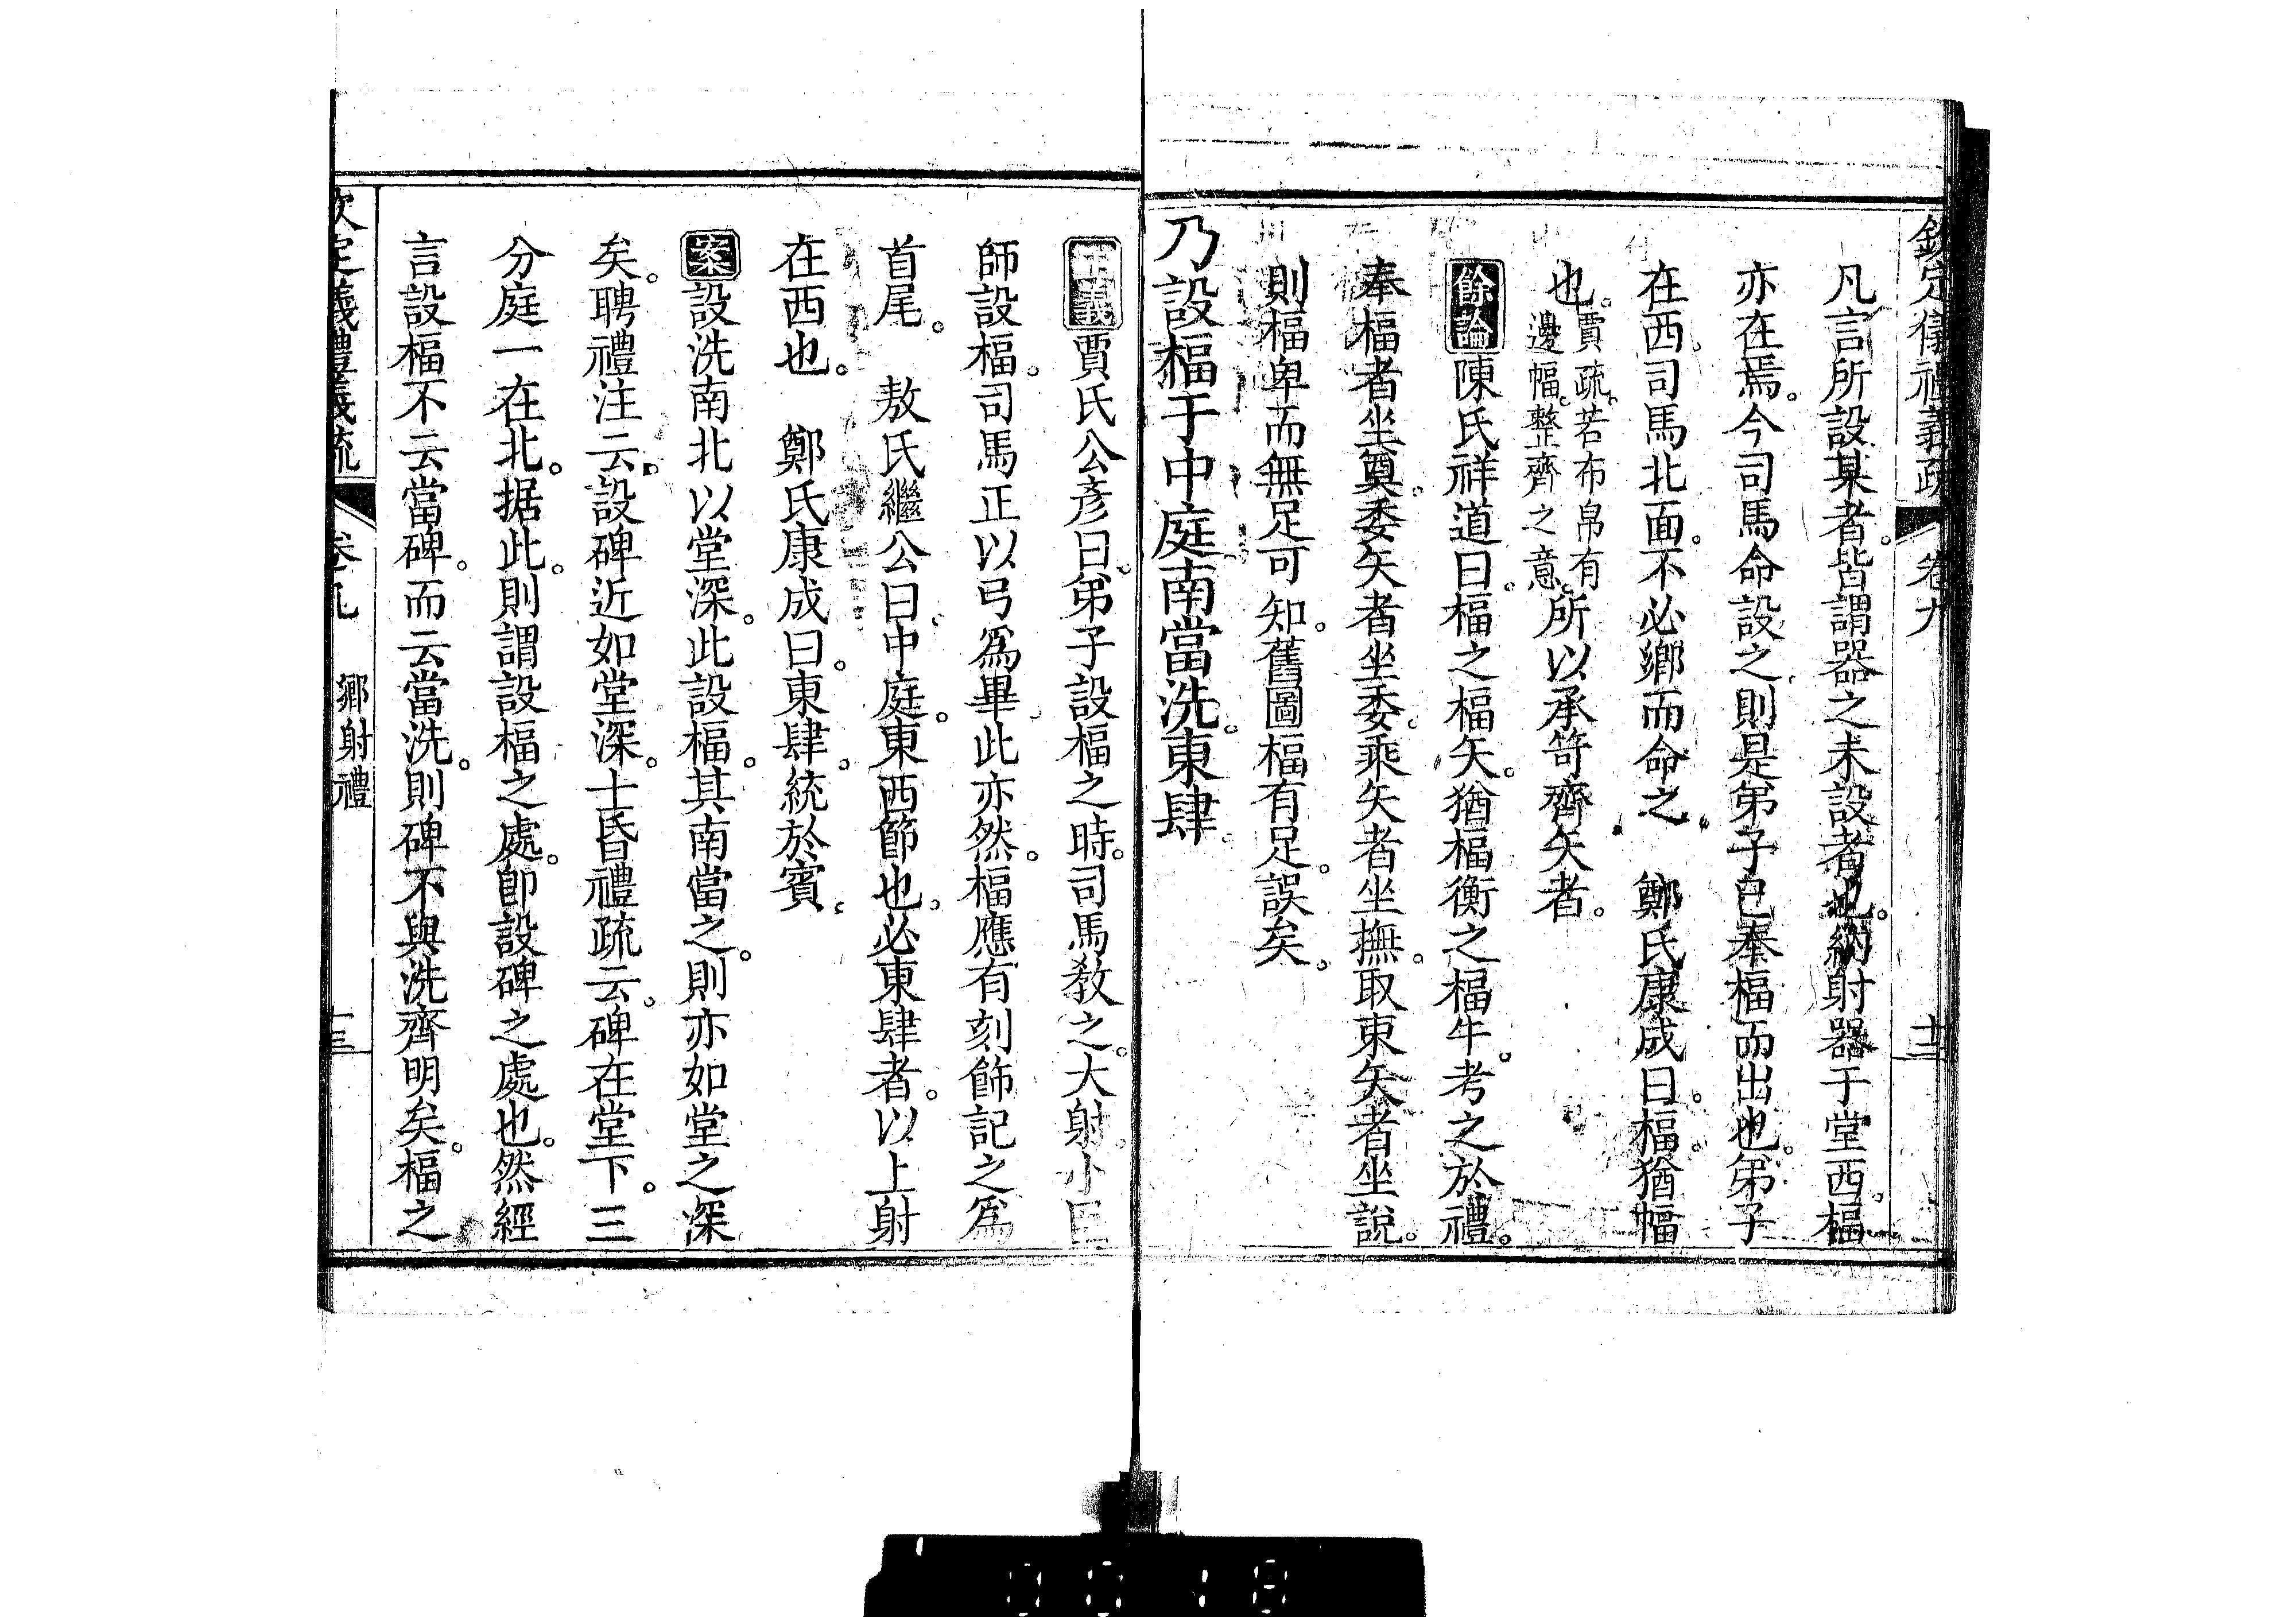 欽定儀禮義疏 卷九 十二
凡言所設某者。皆謂器之未設者也。納射器于堂西。楅
亦在焉。今司馬命設之。則是弟子已奉楅而出也。弟子
在西。司馬北面。不必鄉而命之。 鄭氏康成曰。楅。猶幅
也。賈疏。若布帛有邊幅。整齊之意。所以承笴齊矢者。
餘論陳氏祥道曰。楅之楅矢。猶楅衡之楅牛。考之於禮。
奉楅者坐奠。委矢者坐委。乘矢者坐撫。取束矢者坐說。
則楅卑而無足可知。舊圖楅有足。誤矣。
乃設楅于中庭南當洗。東肆。
正義賈氏公彥曰。弟子設楅之時。司馬教之。大射。小臣
師設楅。司馬正以弓爲畢。此亦然。楅應有刻飾記之爲
首尾。 敖氏繼公曰。中庭。東西節也。必東肆者。以上射
在西也。 鄭氏康成曰。東肆。統於賓。
案設洗南北以堂深。此設楅。其南當之。則亦如堂之深
矣。聘禮注云。設碑近如堂深。士昏禮疏云。碑在堂下。三
分庭一在北。据此。則謂設楅之處。卽設碑之處也。然經
言設楅不云當碑。而云當洗。則碑不與洗齊明矣。楅之
欽定儀禮義疏 卷九 鄉射禮 十三